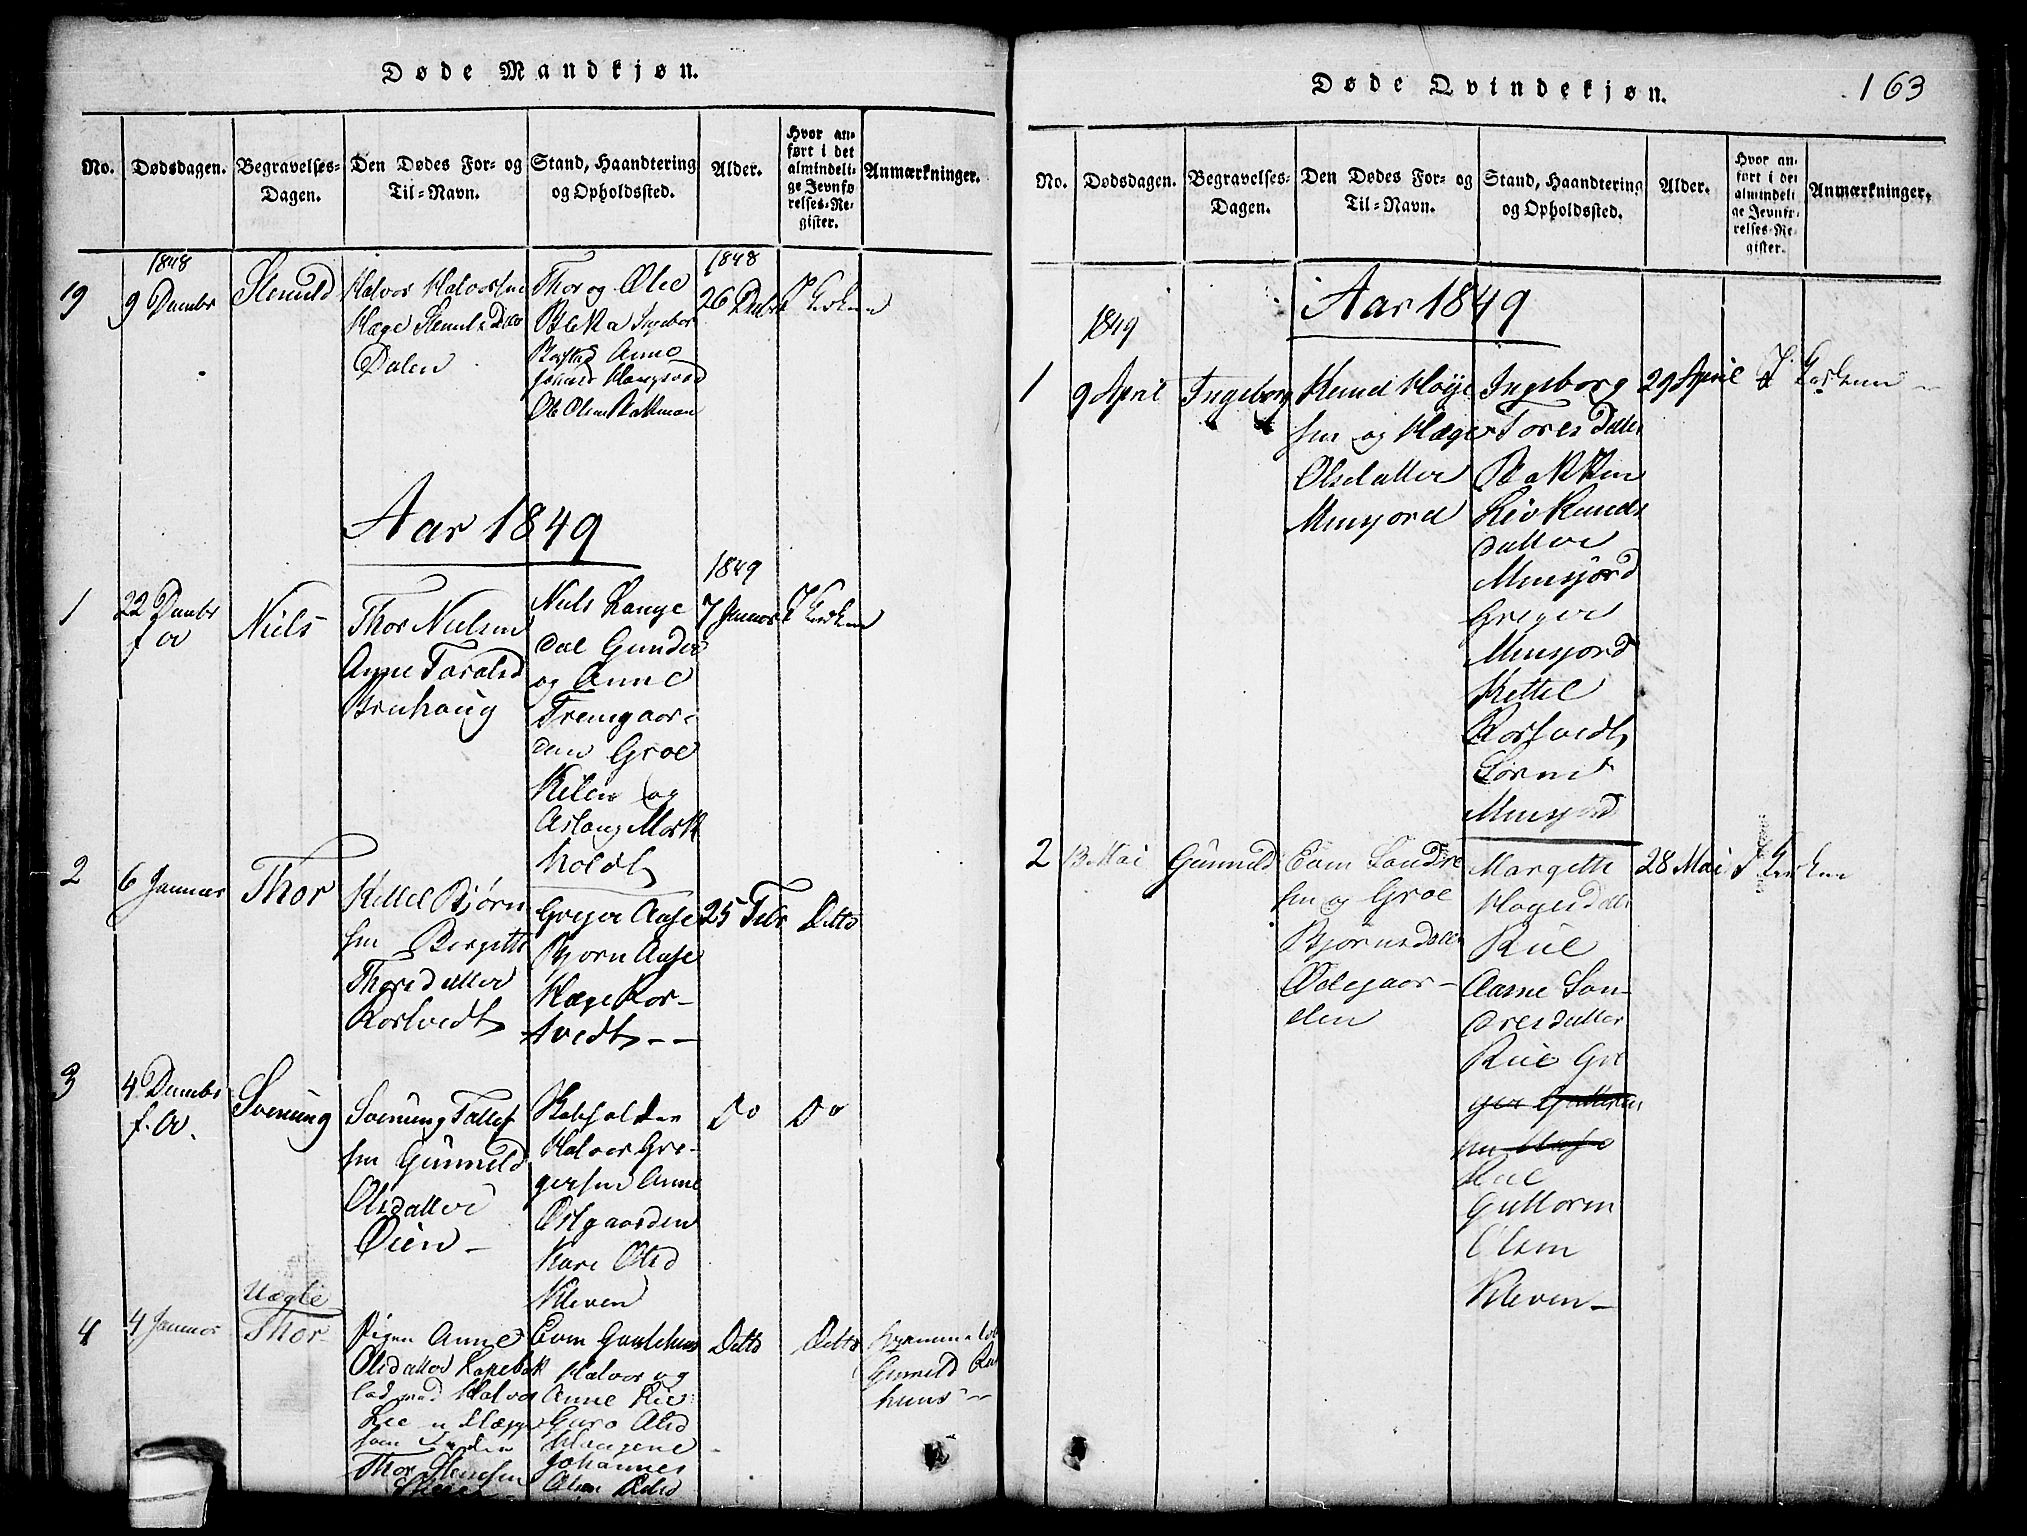 Døde Mandkjøn.
No.
Dødsdagen.
Begravelses-
Dagen.
Den Dødes For- og
Til-Navn.
Stand, Haandtering
og Opholdssted.
Alder.
Hvor an-
ført i det
almindeli-
ge Jevnfø
relses-Re-
gister.
Anmærkninger.
19
1848
9 Decmbr
Stenuld
Halvor Halvorsen
Hæge
Dalen
Thor og Olee
Bleka Ingebor
Anne
Ole Olsen Bakman
1848
26 Decbr
I Kirken
Aar 1849
1
22 Decmbr
f A
Niels
Thor Nielsen
Anne Toralsd
Bruhaug
Niels Lange
dal Gunder
og Anne
Fremgaar-
den Groe
Kilen og
Aslaug Mork
holdt
1849
7 Januar
I Kirken
2
6 Januar
Thor
Kittel Bjørn
sen Bergitte
Thorsdatter
Rorhvedt
Greger Aase
Bjorn Aase
Hæge Ror-
hvedt - -
25 Febr
Ditto
3
4 Decmbr
f. A.
Svenung
Svenung Tallef
sen Gunneld
Olsdatter
Øien -
Kirkesanger
Halvor Gre-
gersen Anne
Østgaarden
Kari Olsd
Kleven
Do
Do
4
4 Januar
Uægte
Thor
Pigen Anne
Olsdatter
lad med Halvor
Lee
Thor Stensen
Even
Halvor og
Anne Rue
Guro Olsd
Haugene
Johannes
Olsen
Ditto
Ditto
Gunneld
huus -
Døde Qvindekjøn.
163
No.
Dødsdagen.
Begravelses-
Dagen.
Den Dødes For- og
Til-Navn.
Stand, Haandtering
og Opholdssted.
Alder.
Hvor an-
ført i det
almindeli
ge Jevnfø-
relses-Re-
gister.
Anmærkninger.
Aar 1849
1
1849
9 April
Ingeborg
Knud Høye
sen og Hæge
Olsdatter
Mensjord
Ingeborg
Toresdatter
Bakken
Liv Knuds
datter
Mensjord
Greger
Mensjord
Kettel
Rorhvedt
Mensjord
29 April
I Kirken
2
13 Mai
Gunneld
Even Sondre
sen og Groe
Bjørnsdatter
Ødegaar-
den
Margitte
Høgesdatter
Rue
Aasne Son-
dresdatter
Rue Gre
ger Guttorm
sen
Rue
Guttorm
Olsen
Kleven -
28 Mai
I Kirken